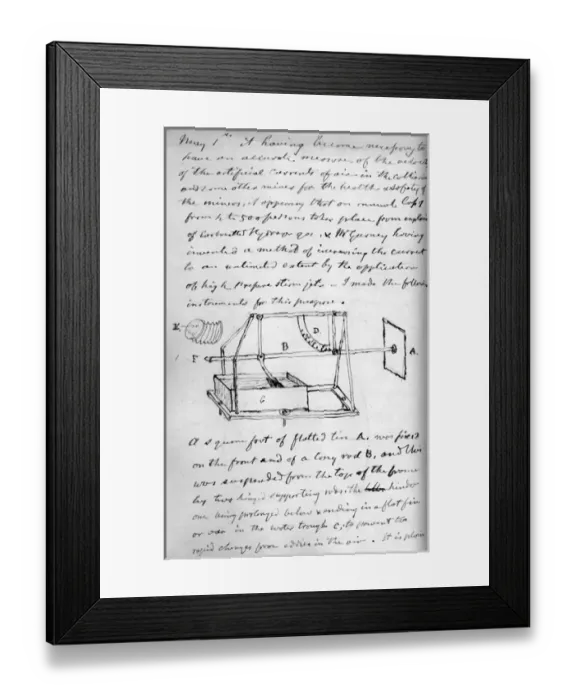 May 1st it having become necessary to
have an accurate measure of the veloci
of the artificial currents of air in the collieri
and some other mines for the health & safety of
the miners, it appearing that an annual loss of
from 4 to 500 persons takes place from
of Carburetted Hydrogen gas, & Mr Gurney having
invented a method of increasing the current
to an unlimited extent by the application
of high pressure steam jets - I made the follow
instruments for this purpose.
K
D
F
B
A
C
A square foot of flatted tin A. was fixed
on the front end of a long rod B, and this
was suspended from the top of the frame
by two hinged supporting rods the hinder
one being prolonged below & ending in a flat fin
or oar in the water trough C, to prevent too
rapid changes from eddies in the air. It is